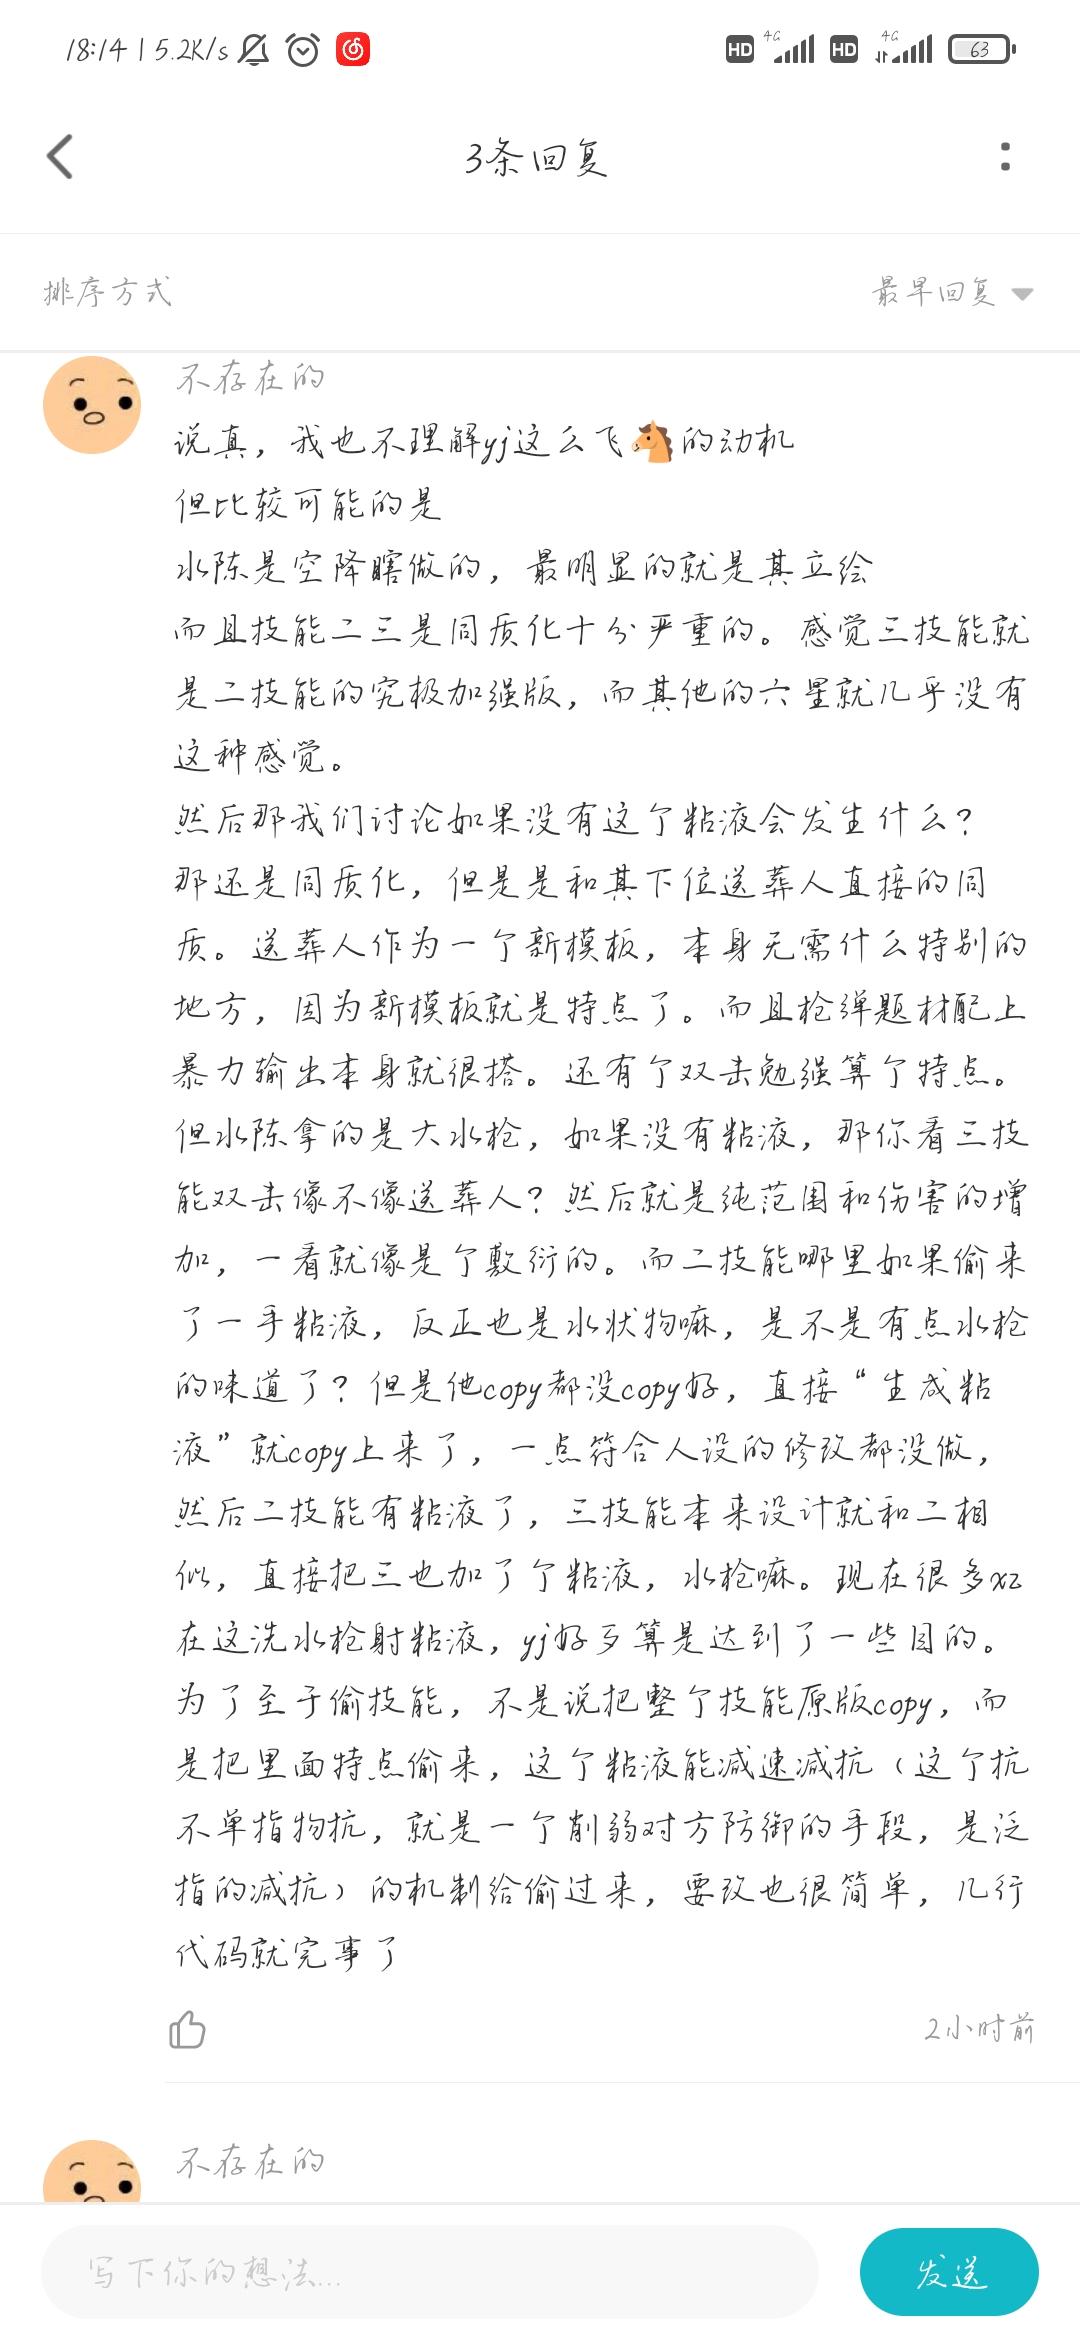 18:14 | 5.2K/s
HD 4G HD 4G 63
3条回复
排序方式
最早回复
不存在的
说真，我也不理解yj这么飞🐴的动机
但比较可能的是
水陈是空降瞎做的，最明显的就是其立绘
而且技能二三是同质化十分严重的。感觉三技能就
是二技能的究极加强版，而其他的六星就几乎没有
这种感觉。
然后那我们讨论如果没有这个粘液会发生什么？
那还是同质化，但是是和其下位送葬人直接的同
质。送葬人作为一个新模板，本身无需什么特别的
地方，因为新模板就是特点了。而且枪弹题材配上
暴力输出本身就很搭。还有个双击勉强算个特点。
但水陈拿的是大水枪，如果没有粘液，那你看三技
能双击像不像送葬人？然后就是纯范围和伤害的增
加，一看就像是个敷衍的。而二技能哪里如果偷来
了一手粘液，反正也是水状物嘛，是不是有点水枪
的味道了？但是他copy都没copy好，直接“生成粘
液”就copy上来了，一点符合人设的修改都没做，
然后二技能有粘液了，三技能本来设计就和二相
似，直接把三也加了个粘液，水枪嘛。现在很多xz
在这洗水枪射粘液，yj好歹算是达到了一些目的。
为了至于偷技能，不是说把整个技能原版copy，而
是把里面特点偷来，这个粘液能减速减抗（这个抗
不单指物抗，就是一个削弱对方防御的手段，是泛
指的减抗）的机制给偷过来，要改也很简单，几行
代码就完事了
2小时前
不存在的
写下你的想法...
发送